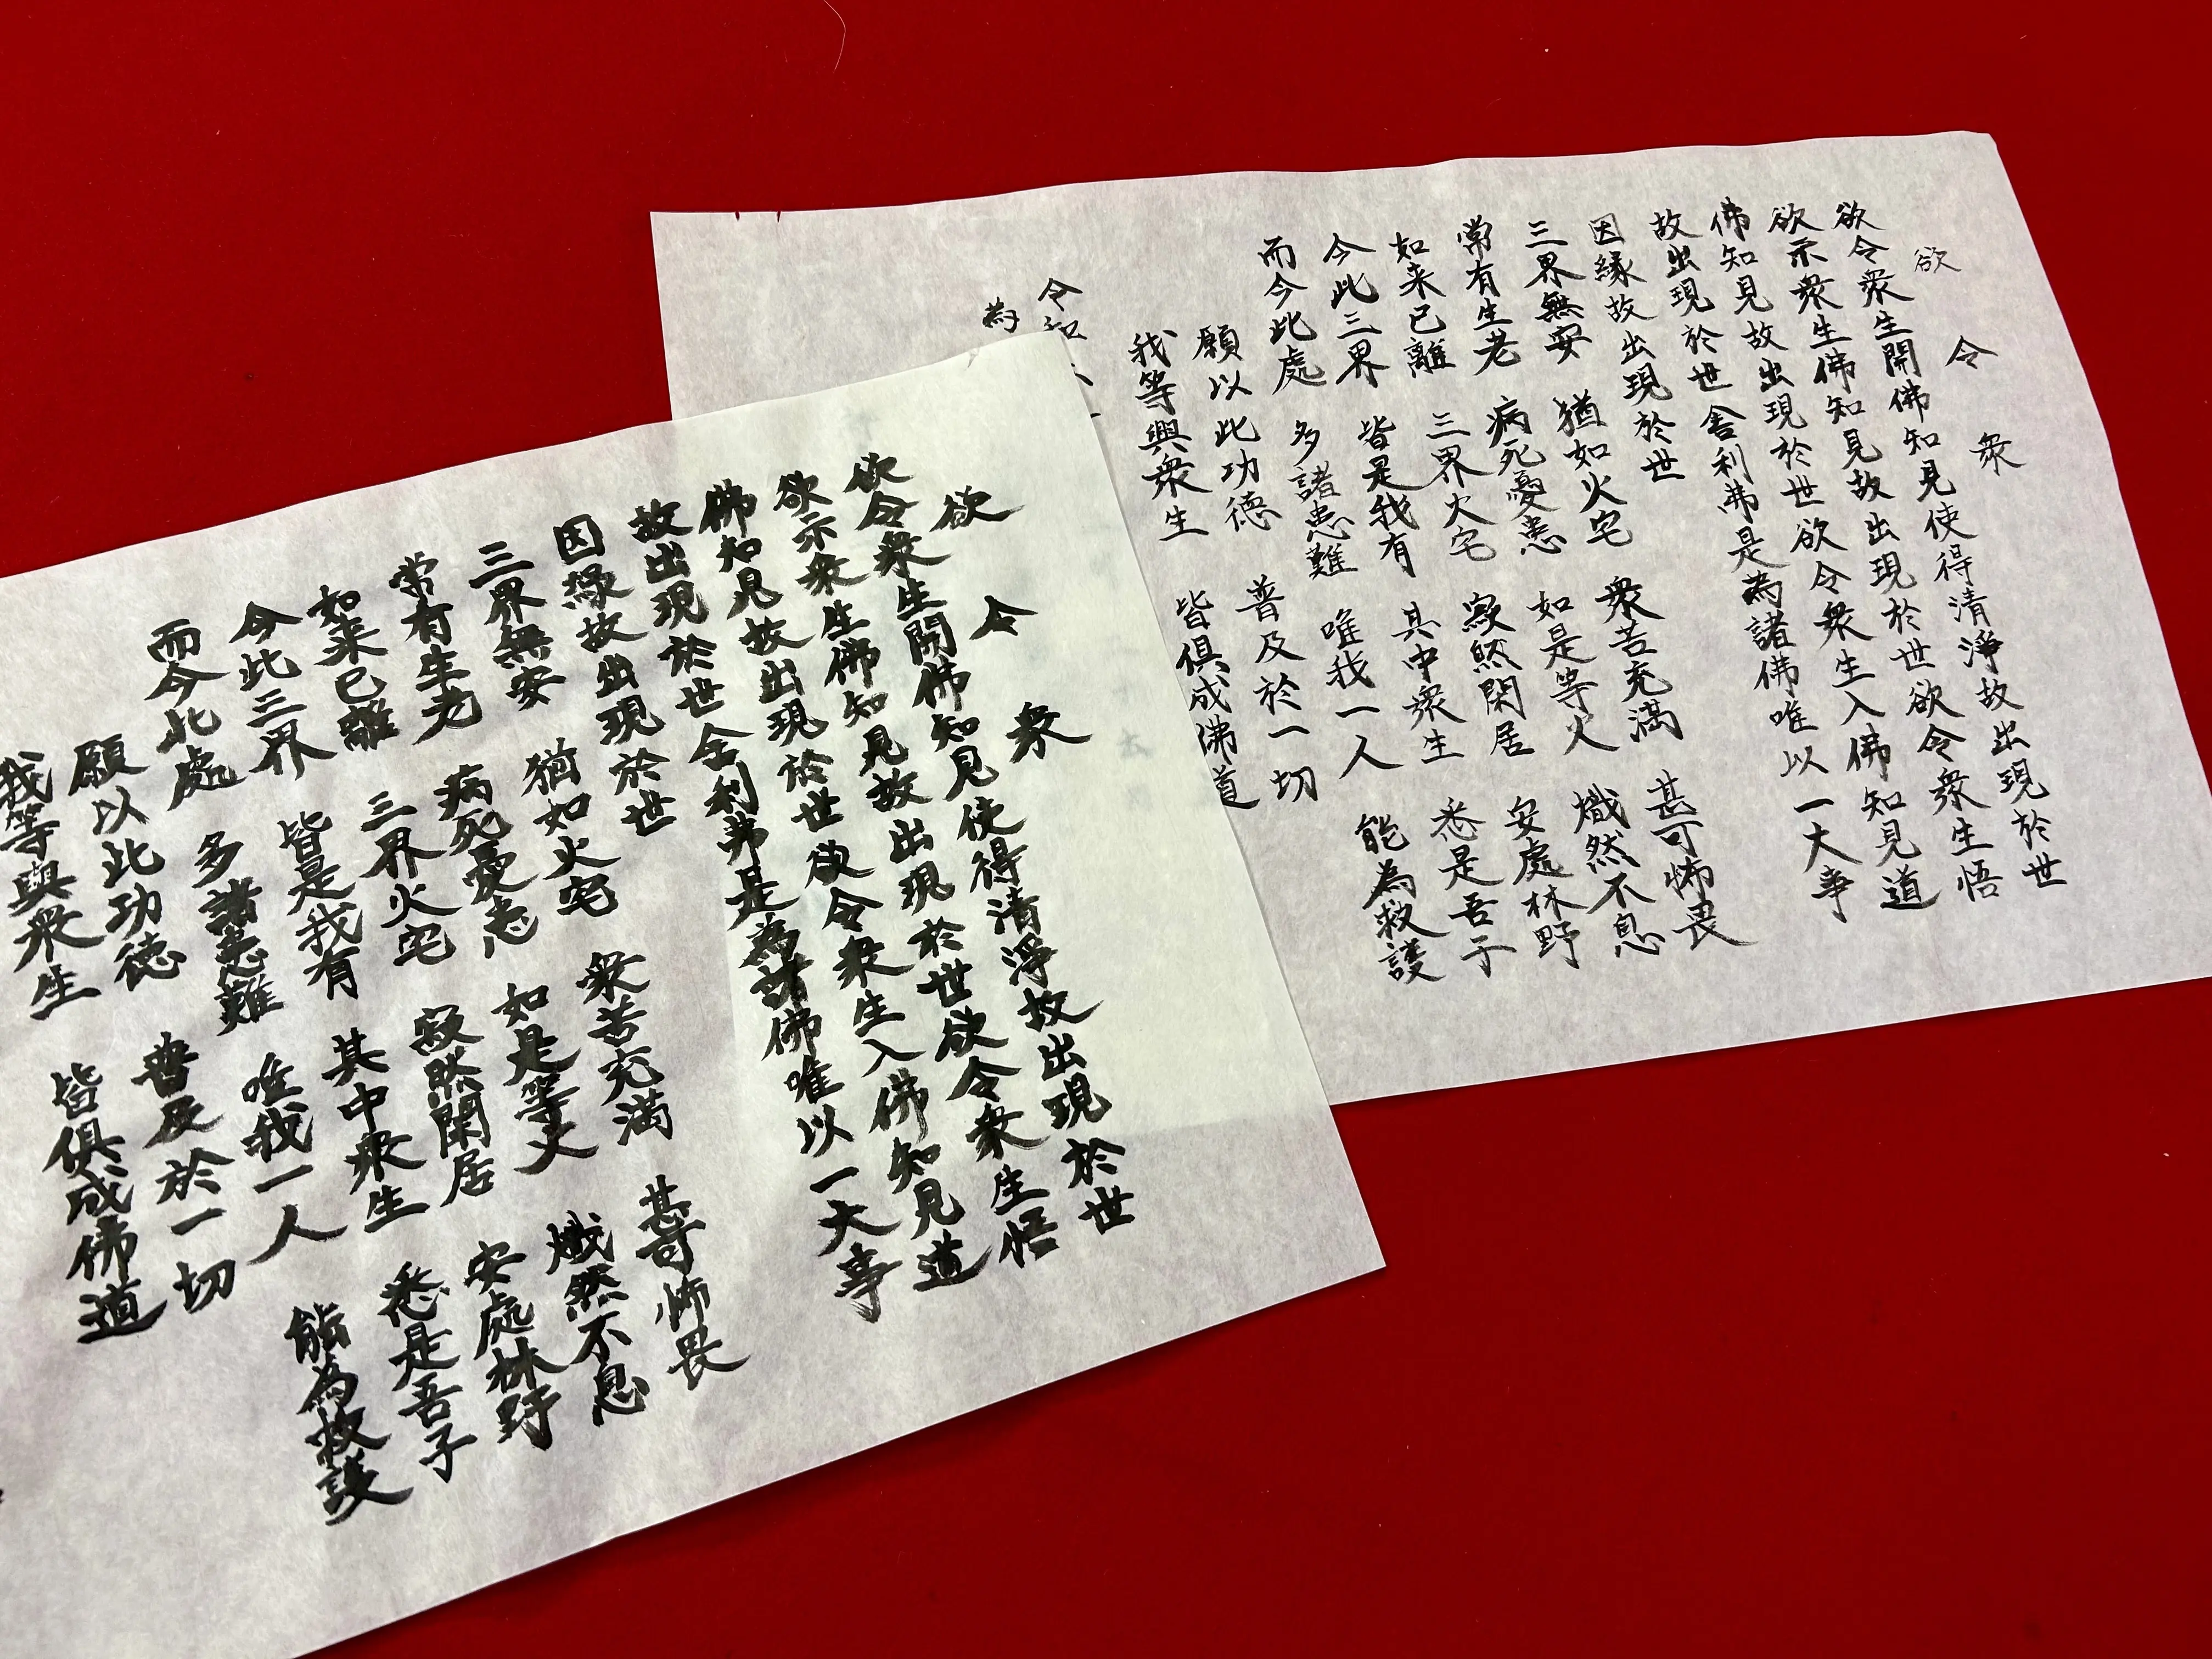 欲 令 衆
欲令衆生開佛知見使得清淨故出現於世
欲示衆生佛知見故出現於世欲令衆生悟
佛知見故出現於世欲令衆生入佛知見道
故出現於世舎利弗是為諸佛唯以一大事
因縁故出現於世
三界無安 猶如火宅 衆苦充満 甚可怖畏
常有生老 病死憂患 如是等火 熾然不息
如来已離 三界火宅 寂然閑居 安處林野
今此三界 皆是我有 其中衆生 悉是吾子
而今此處 多諸患難 唯我一人 能為救護
願以此功徳 普及於一切
我等與衆生 皆倶成佛道
令和
為
欲 令 衆
欲令衆生開佛知見使得清淨故出現於世
欲示衆生佛知見故出現於世欲令衆生悟
佛知見故出現於世欲令衆生入佛知見道
故出現於世舎利弗是為諸佛唯以一大事
因縁故出現於世
三界無安 猶如火宅 衆苦充満 甚可怖畏
常有生老 病死憂患 如是等火 熾然不息
如来已離 三界火宅 寂然閑居 安處林野
今此三界 皆是我有 其中衆生 悉是吾子
而今此處 多諸患難 唯我一人 能為救護
願以此功徳 普及於一切
我等與衆生 皆倶成佛道